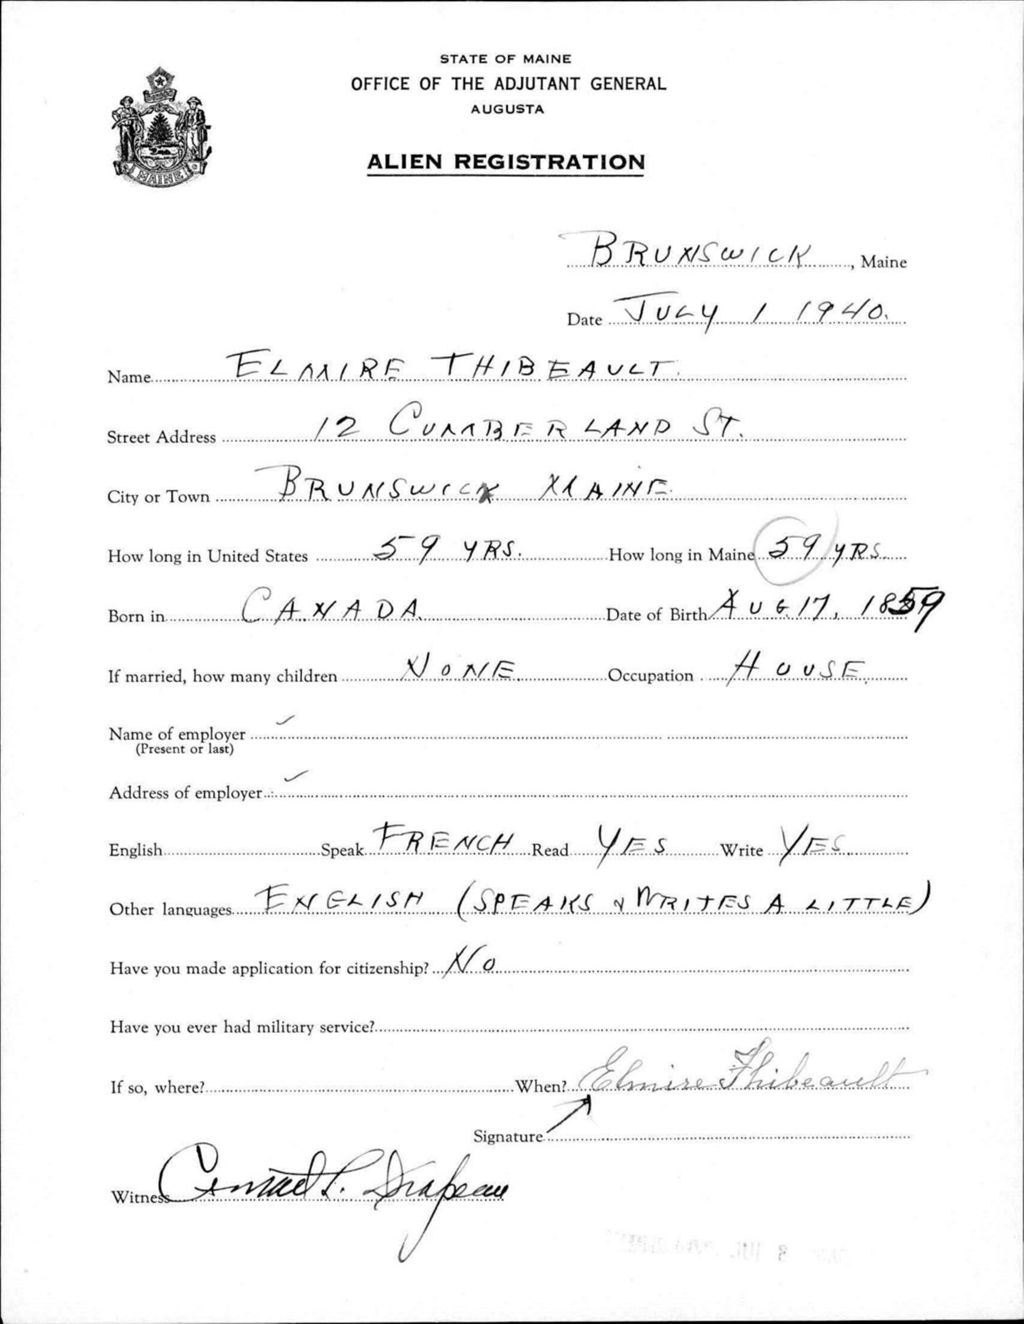 STATE OF MAINE
OFFICE OF THE ADJUTANT GENERAL
AUGUSTA
ALIEN REGISTRATION
MAINE
BRUNSWICK, Maine
Date JULY 1 1940.
Name ELMIRE THIBEAULT.
Street Address 12 CUMBERLAND ST.
City or Town BRUNSWICK MAINE.
How long in United States 59 YRS. How long in Maine 59 YRS.
Born in CANADA. Date of Birth AUG 17, 1859
If married, how many children NONE. Occupation HOUSE.
Name of employer
(Present or last)
Address of employer
English Speak FRENCH Read YES Write YES.
Other languages ENGLISH (SPEAKS & WRITES A LITTLE)
Have you made application for citizenship? NO
Have you ever had military service?
If so, where? When? Elmire Thibeault
Signature
Witness L. Drapeau